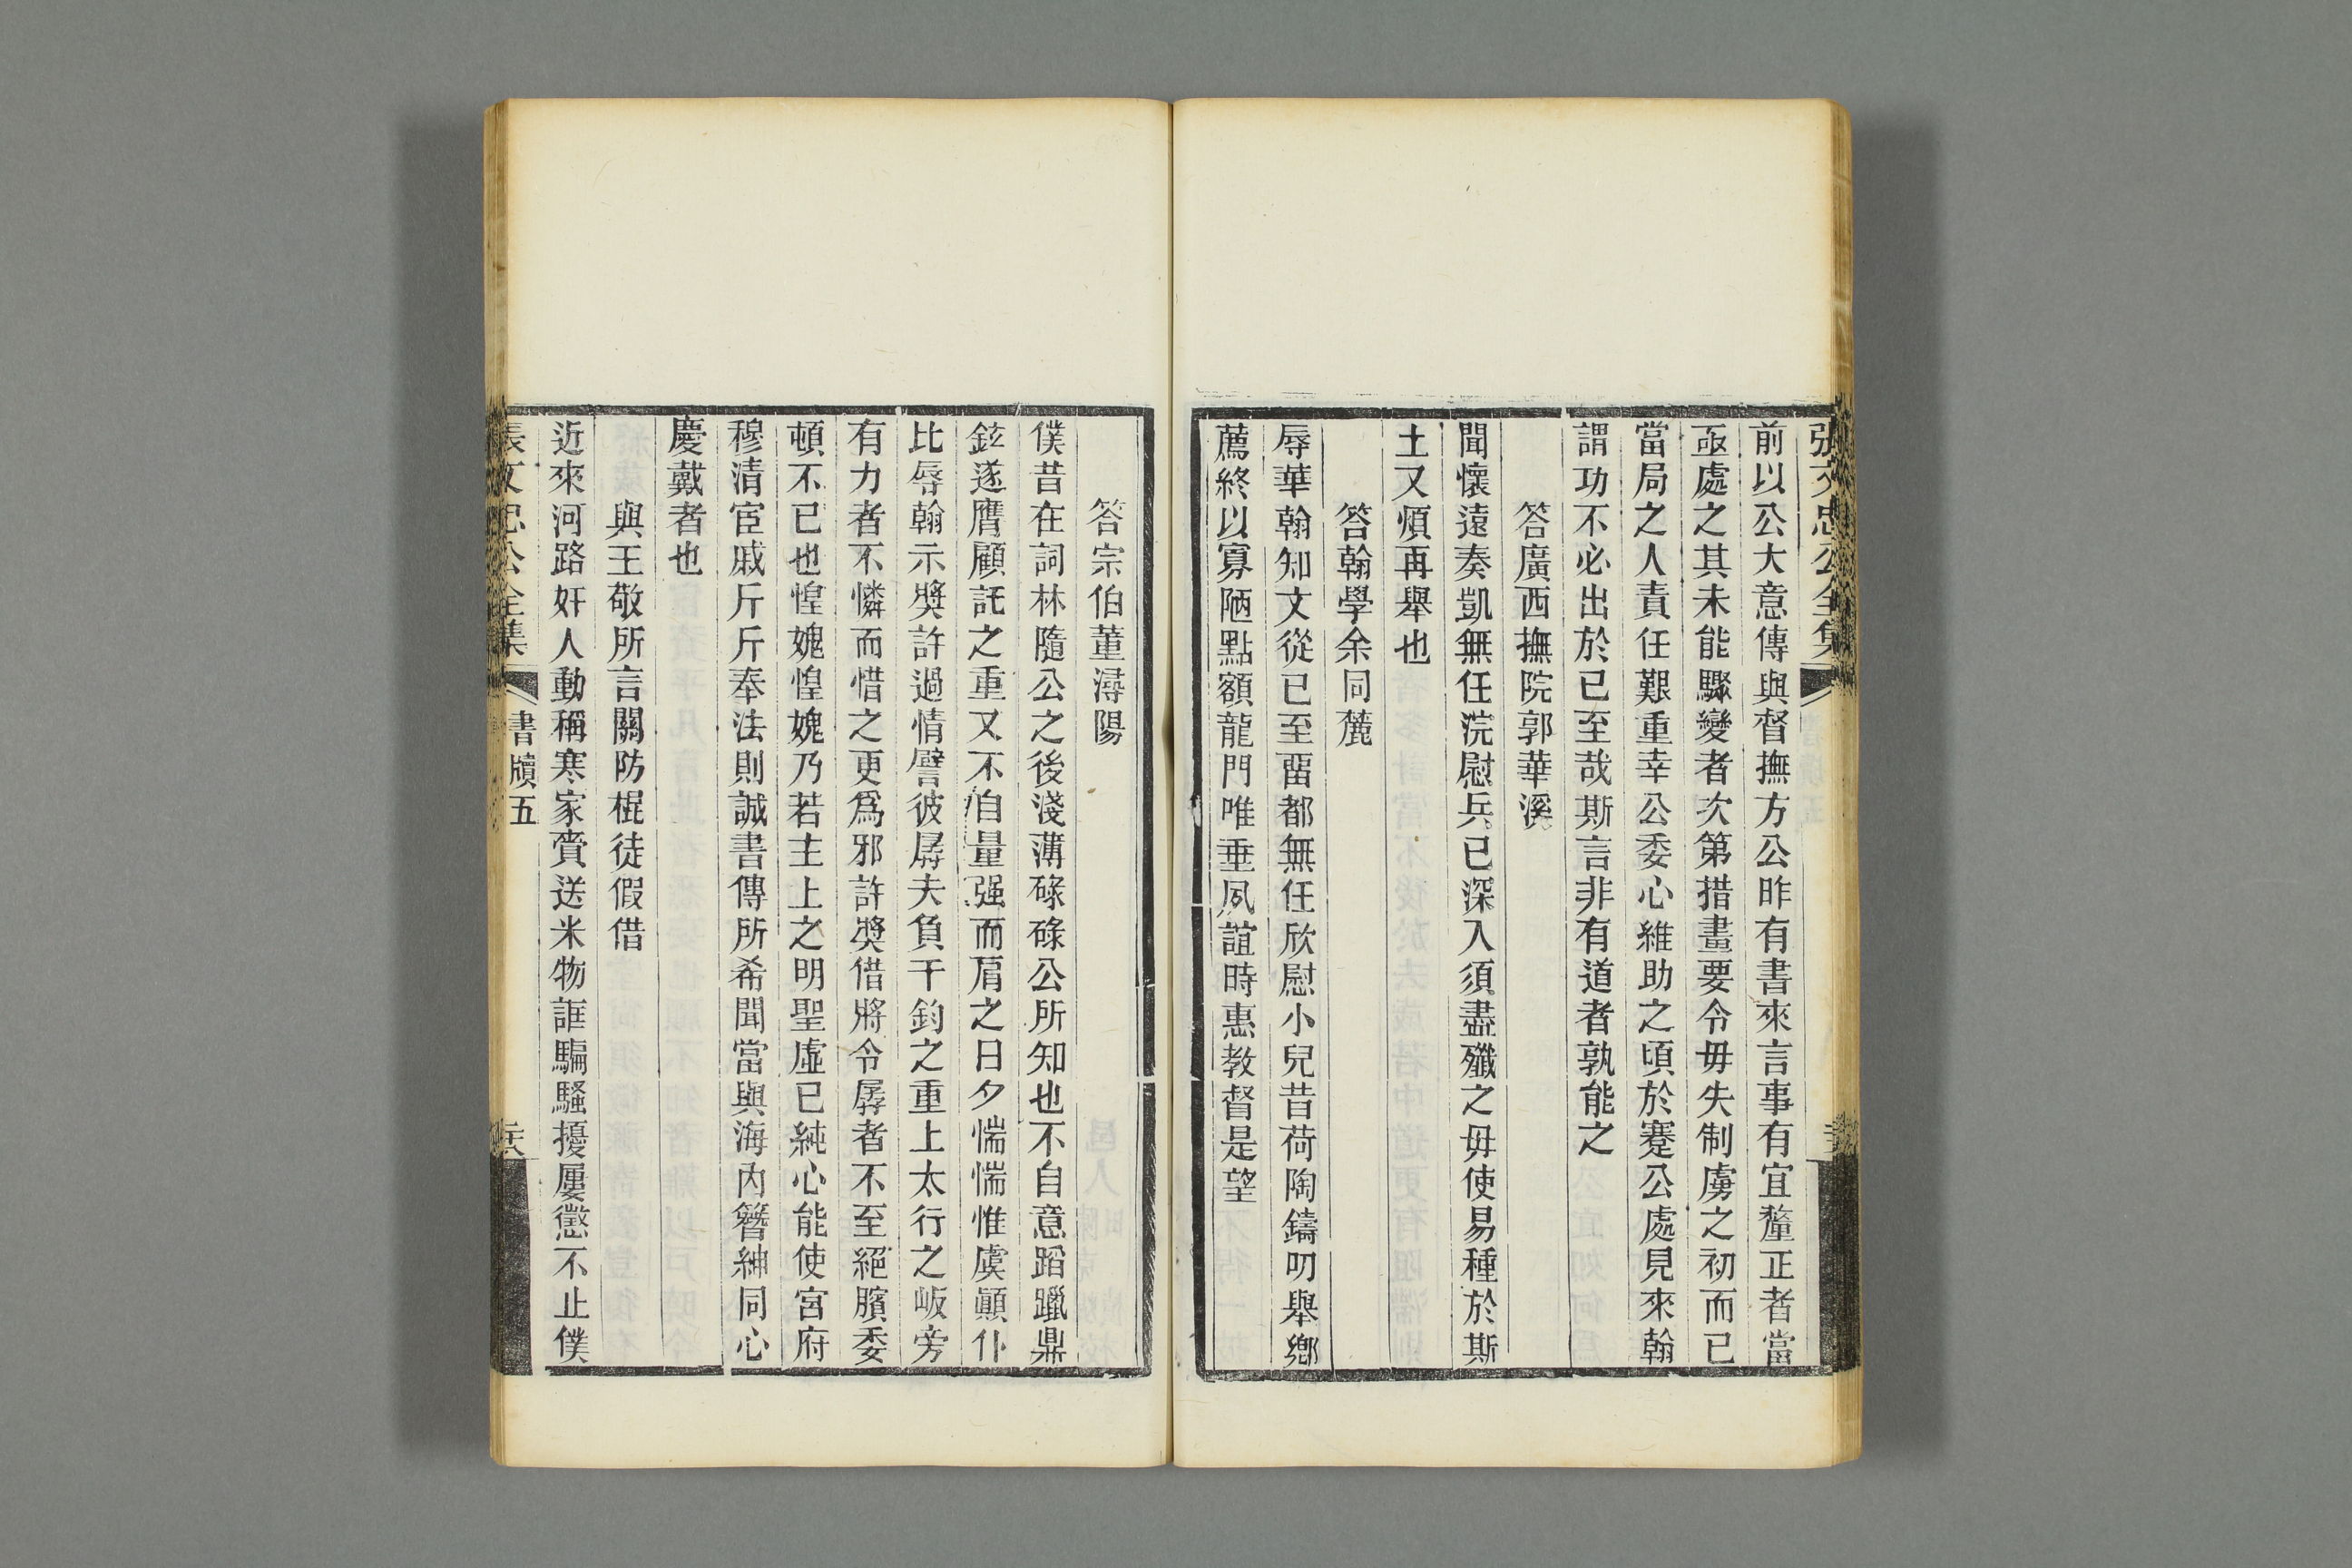 張文忠公全集
前以公大意傳與督撫方公昨有書來言事有宜釐正者當
亟處之其未能驟變者次第措畫要令毋失制虜之初而已
當局之人責任艱重幸公委心維助之頃於蹇公處見來翰
謂功不必出於已至哉斯言非有道者孰能之
答廣西撫院郭華溪
聞懷遠奏凱無任浣慰兵已深入須盡殲之毋使易種於斯
土又煩再舉也
答翰學余同麓
辱華翰知文從已至畱都無任欣慰小兒昔荷陶鑄叨舉鄉
薦終以寡陋點額龍門唯垂夙誼時惠教督是望
答宗伯董潯陽
僕昔在詞林隨公之後淺薄碌碌公所知也不自意蹈躐鼎
鉉遂膺顧託之重又不自量强而肩之日夕惴惴惟虞顚仆
比辱翰示獎許過情譬彼孱夫負千鈞之重上太行之岅旁
有力者不憐而惜之更爲邪許獎借將令孱者不至絕臏委
頓不已也惶媿惶媿乃若主上之明聖虛已純心能使宮府
穆清宦戚斤斤奉法則誠書傳所希聞當與海內簪紳同心
慶戴者也
與王敬所言關防棍徒假借
近來河路奸人動稱寒家賫送米物誆騙騷擾屢懲不止僕
張文忠公全集 書牘五